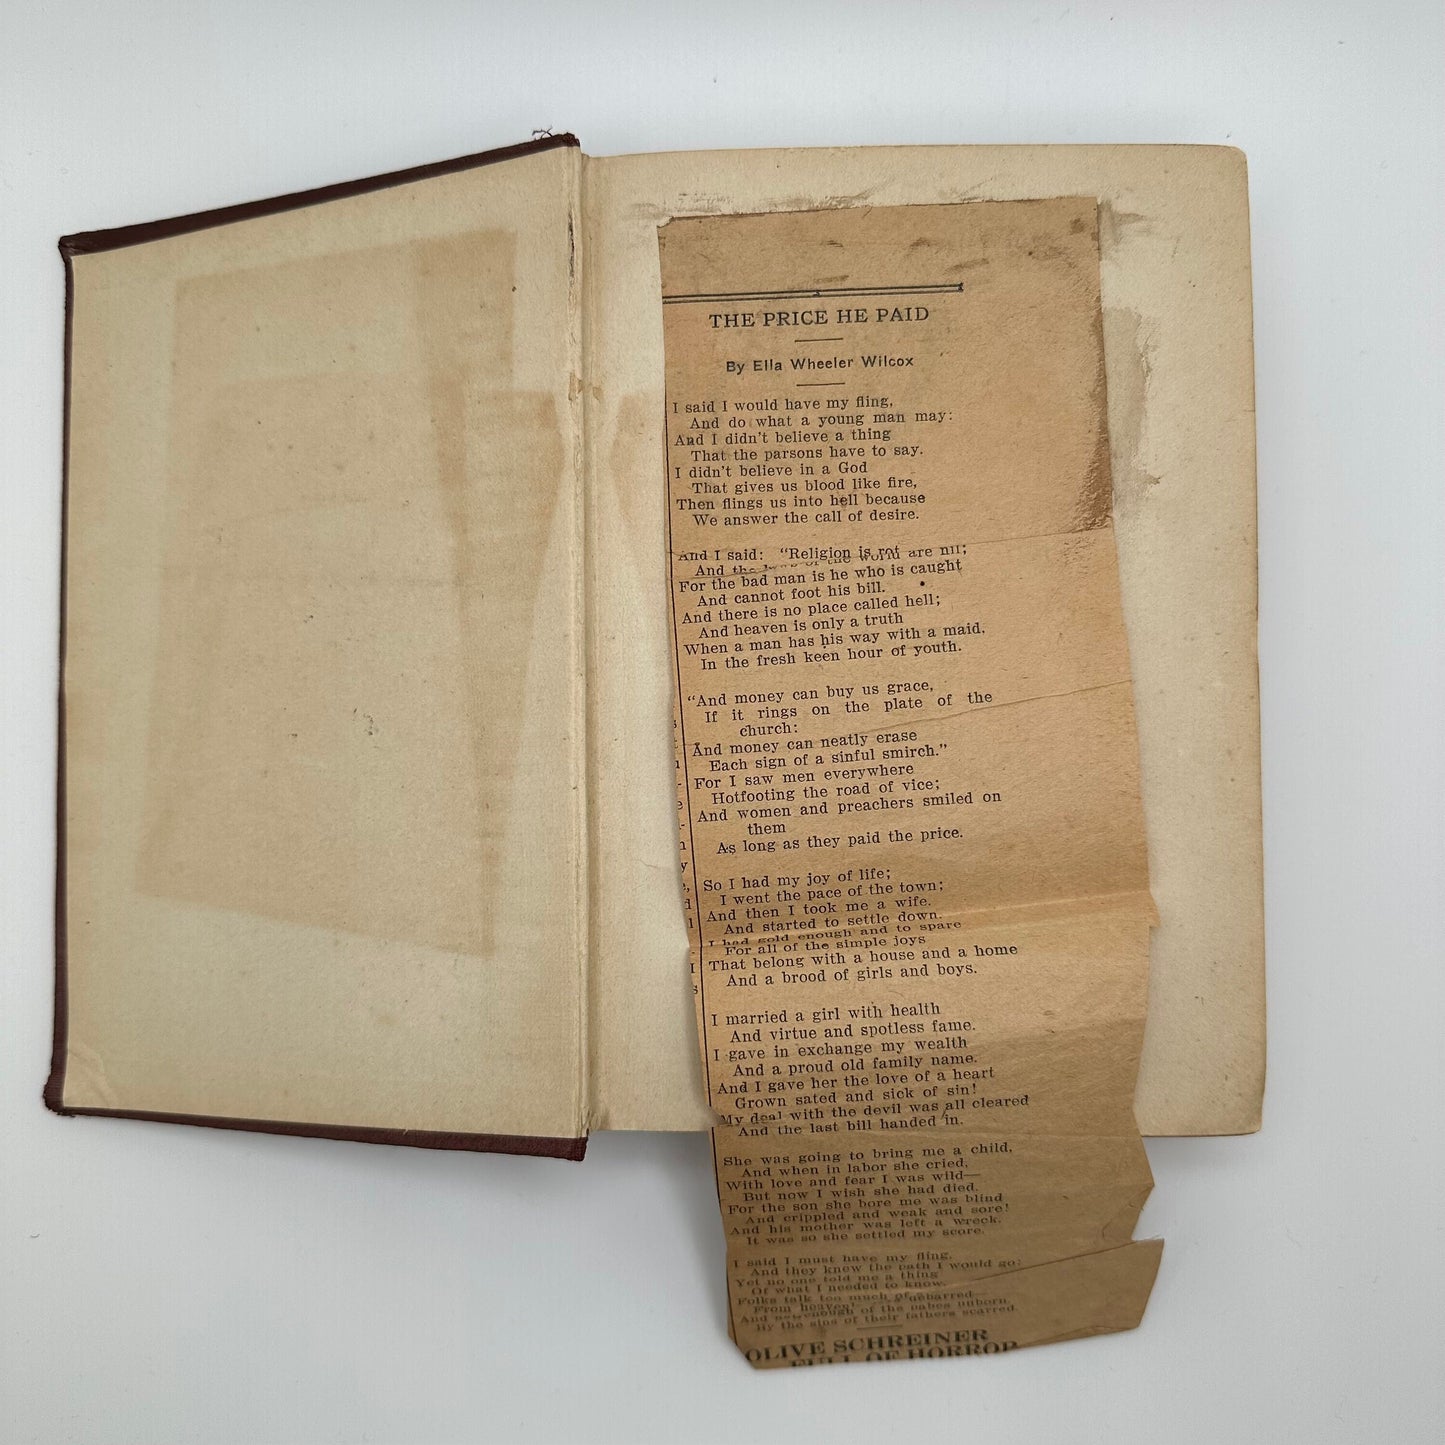 THE PRICE HE PAID
By Ella Wheeler Wilcox
I said I would have my fling,
And do what a young man may:
And I didn't believe a thing
That the parsons have to say.
I didn't believe in a God
That gives us blood like fire,
Then flings us into hell because
We answer the call of desire.
And I said: "Religion is rot
are nil;
And the laws of the world
For the bad man is he who is caught
And cannot foot his bill.
And there is no place called hell;
And heaven is only a truth
When a man has his way with a maid,
In the fresh keen hour of youth.
"And money can buy us grace,
If it rings on the plate of the
church:
And money can neatly erase
Each sign of a sinful smirch."
For I saw men everywhere
Hotfooting the road of vice;
And women and preachers smiled on
them
As long as they paid the price.
So I had my joy of life;
I went the pace of the town;
And then I took me a wife.
And started to settle down.
I had gold enough and to spare
For all of the simple joys
That belong with a house and a home
And a brood of girls and boys.
I married a girl with health
And virtue and spotless fame.
I gave in exchange my wealth
And a proud old family name.
And I gave her the love of a heart
Grown sated and sick of sin!
My deal with the devil was all cleared
And the last bill handed in.
She was going to bring me a child,
And when in labor she cried,
With love and fear I was wild—
But now I wish she had died.
For the son she bore me was blind
And crippled and weak and sore!
And his mother was left a wreck.
It was so she settled my score.
I said I must have my fling,
And they knew the path I would go;
Yet no one told me a thing
Of what I needed to know.
Folks talk too much of debarred—
From heaven!
And not enough of the babes unborn,
By the sins of their fathers scarred.
OLIVE SCHREINER
FULL OF HORROR